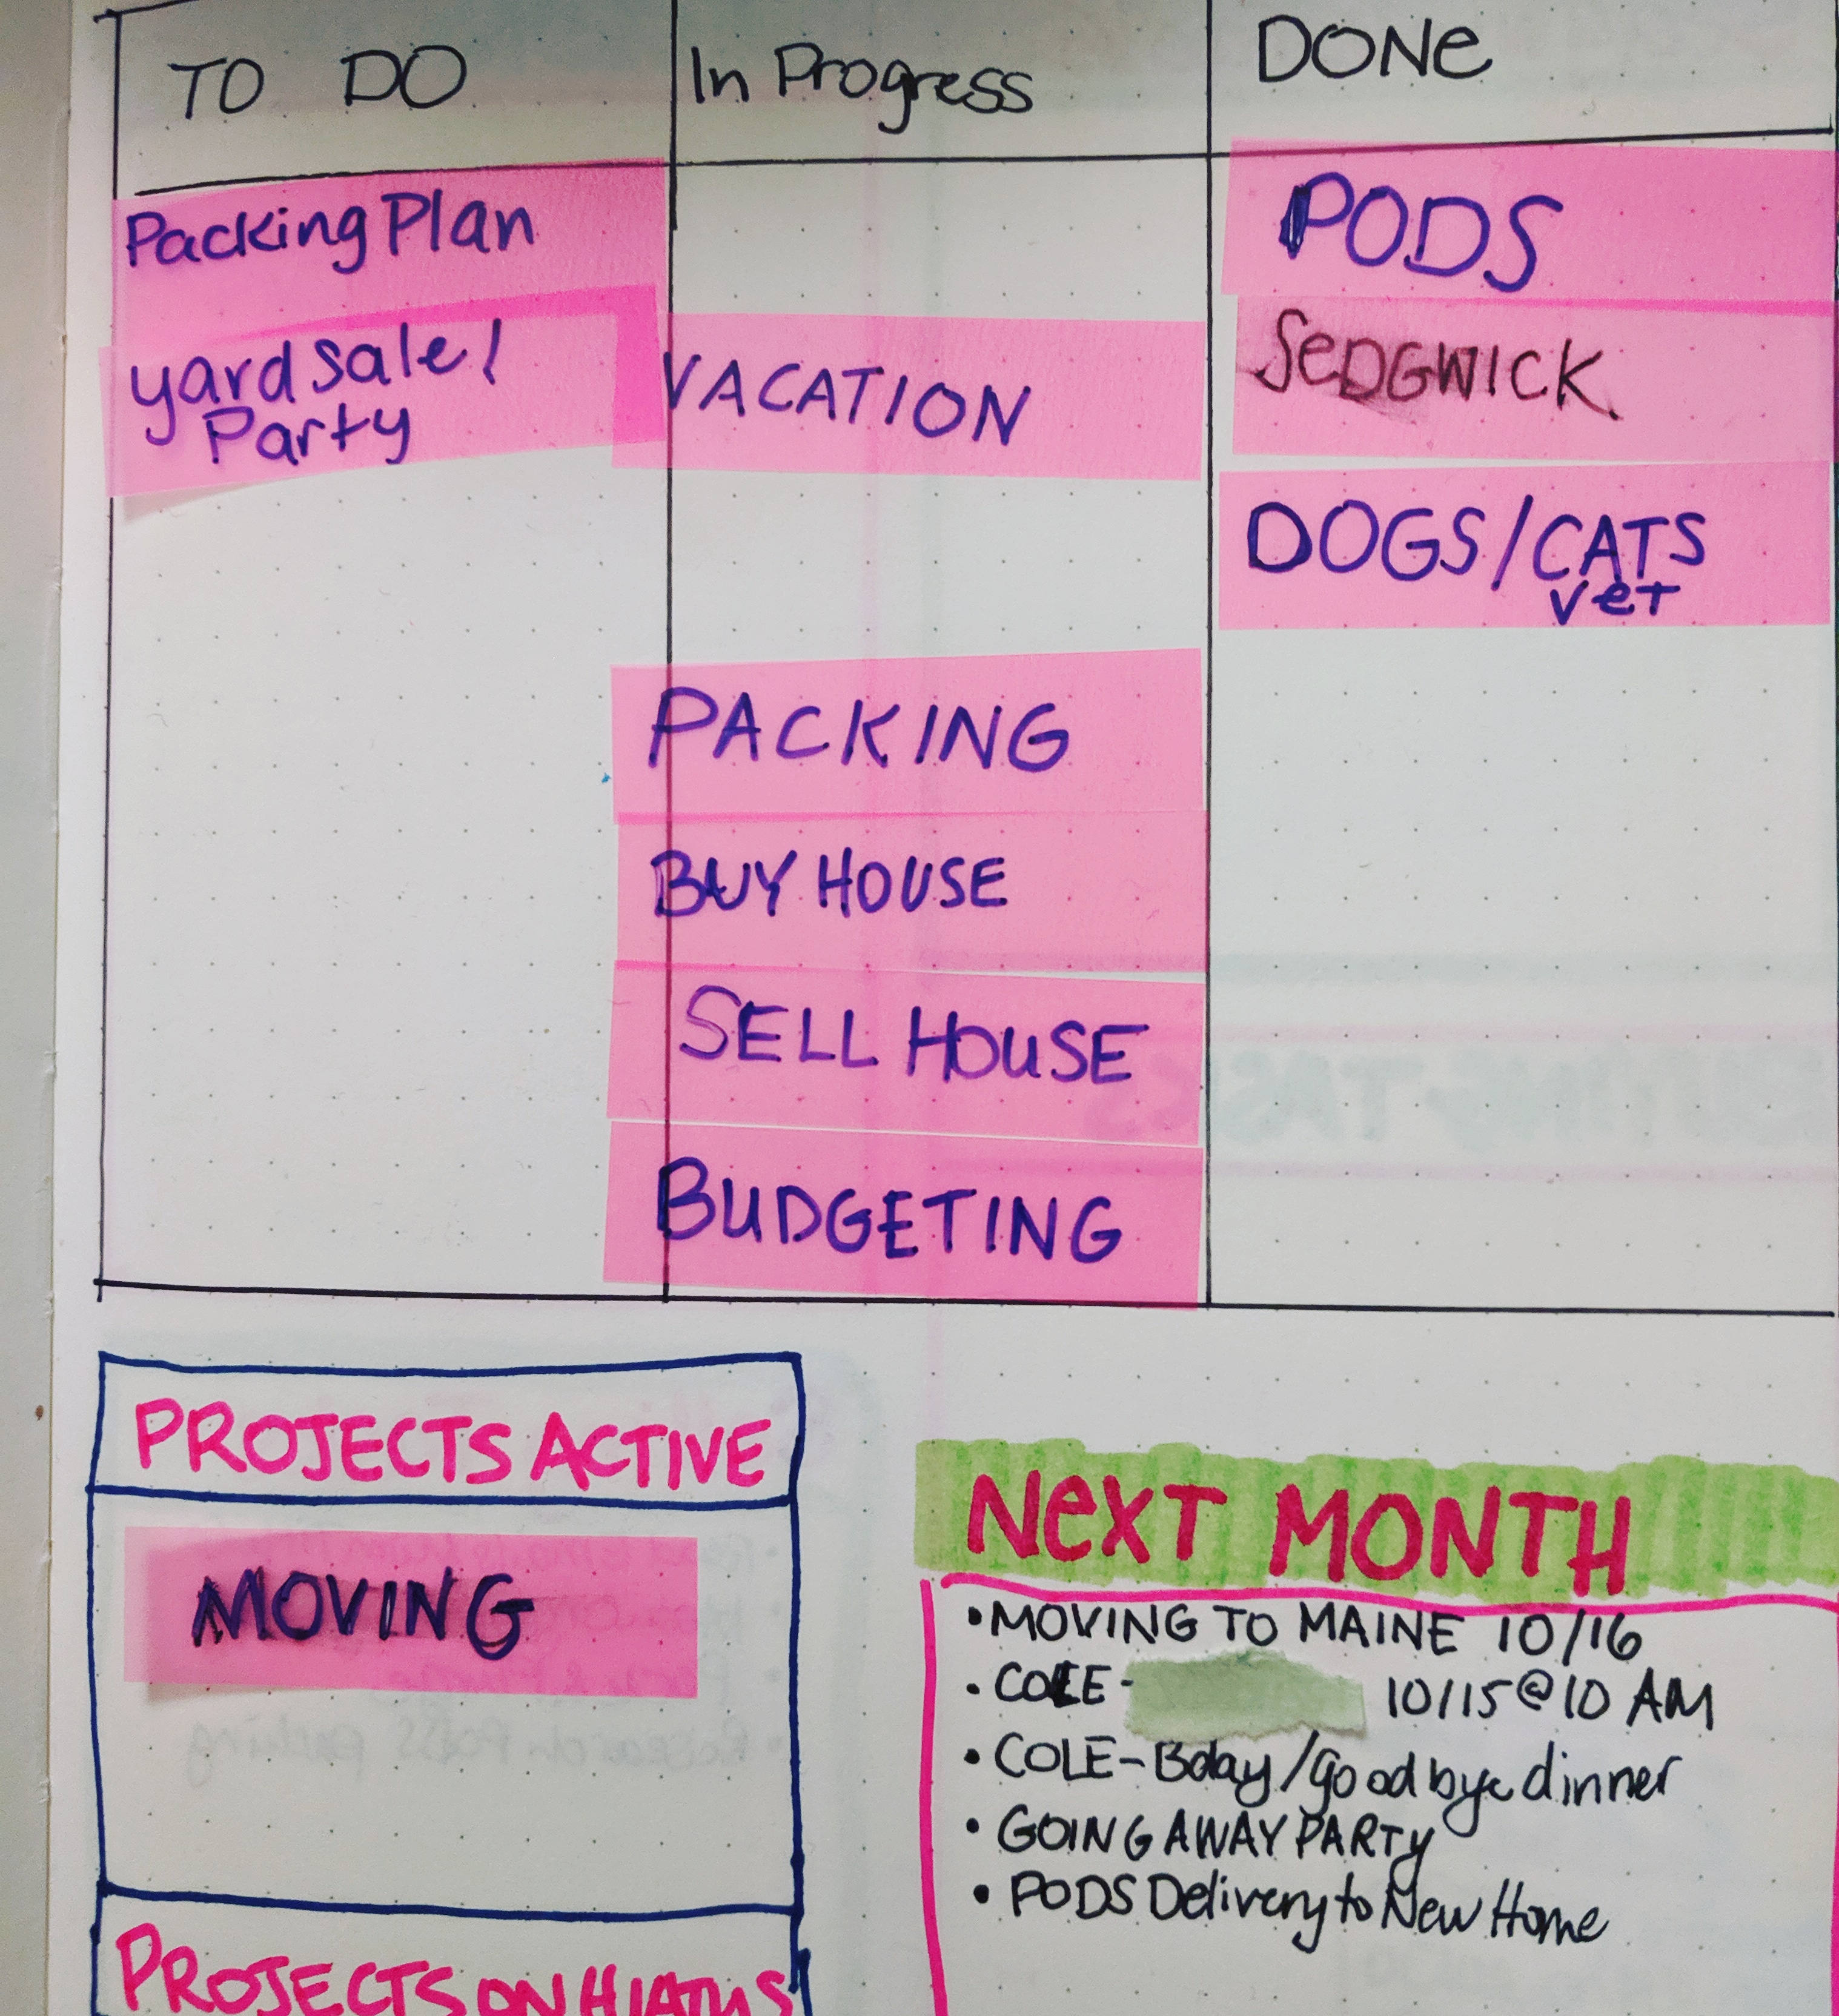 TO DO
In Progress
DONe
Packing Plan
yard sale/
Party
VACATION
PACKING
BUY HOUSE
SELL HOUSE
BUDGETING
PODS
SeDGWICK
DOGS/CATS
vet
PROJECTS ACTIVE
MOVING
PROJECTS ON HIATUS
NeXT MONTH
• MOVING TO MAINE 10/16
• COLE - 10/15 @ 10 AM
• COLE - Bday/Goodbye dinner
• GOING AWAY PARTy
• PODS Delivery to New Home